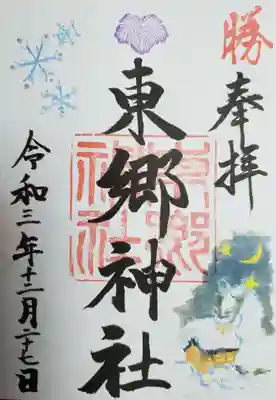 勝
奉拝
東郷神社
東郷神社
令和三年十二月二十七日